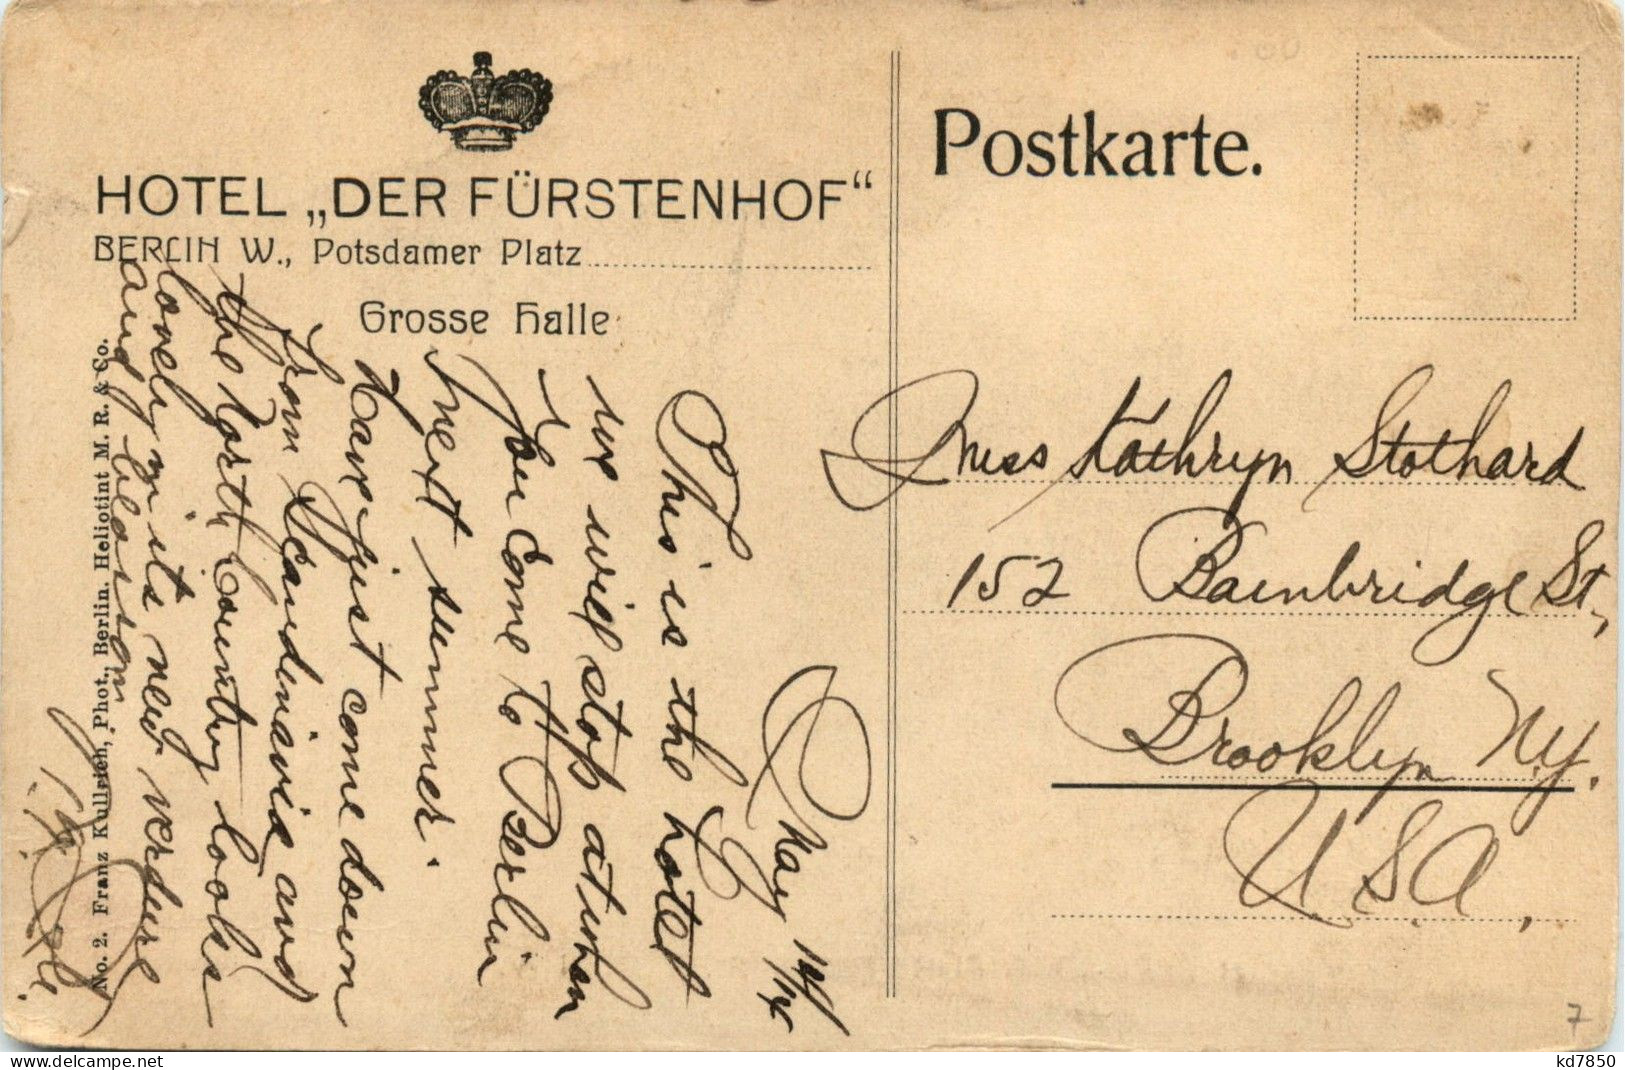 HOTEL „DER FÜRSTENHOF“
BERLIN W., Potsdamer Platz
Grosse Halle
No. 2. Franz Kullrich, Phot., Berlin. Heliotint M. R. & Co.
May 1st
This is the hotel
we will stop at when
you come to Berlin
next summer.
Have just come down
from Scandinavia and
the North Country looks
lovely in its new verdure
and blossom
Postkarte.
Miss Kathryn Stothard
152 Bainbridge St,
Brooklyn N.Y.
U.S.A,
7
kd7850